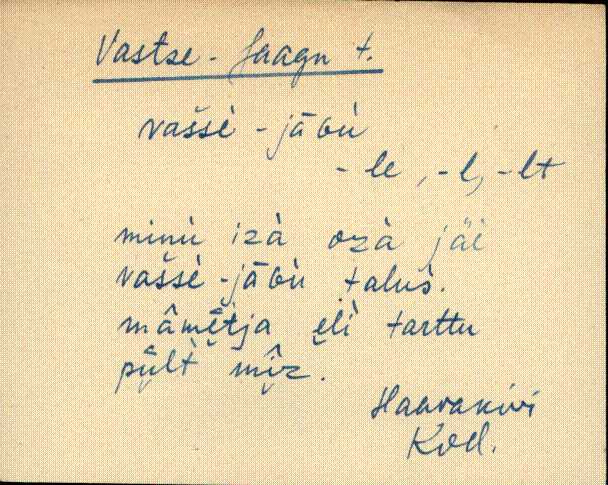 Vastse-Jaagu t.
vaššè-jāBù
-le, -l, -lt
minù izà ozà jäi
vaššè-jāBù talùs.
mâmē̮tja e̮lì tarttu
pū̮lt mī̮z.
Haavakivi
Kod.